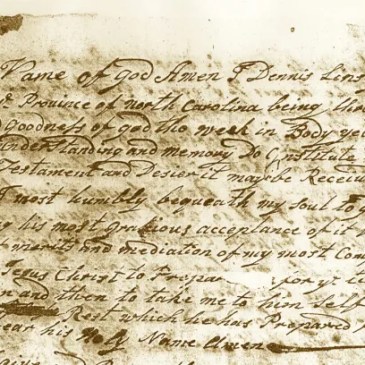 Name of God Amen I Dennis Lins
ye Province of North Carolina being thro
Goodness of god tho week in Body ye
understanding and memory Do Constitute
Testament and Desier it maybe Receiv
I most humbly bequeath my Soul to g
his most gratious acceptance of it
merits and mediation of my most Com
Jesus Christ to Prepar for ye
and then to take me to him self
Rest which he has Prepared
ear his Holy Name Amen